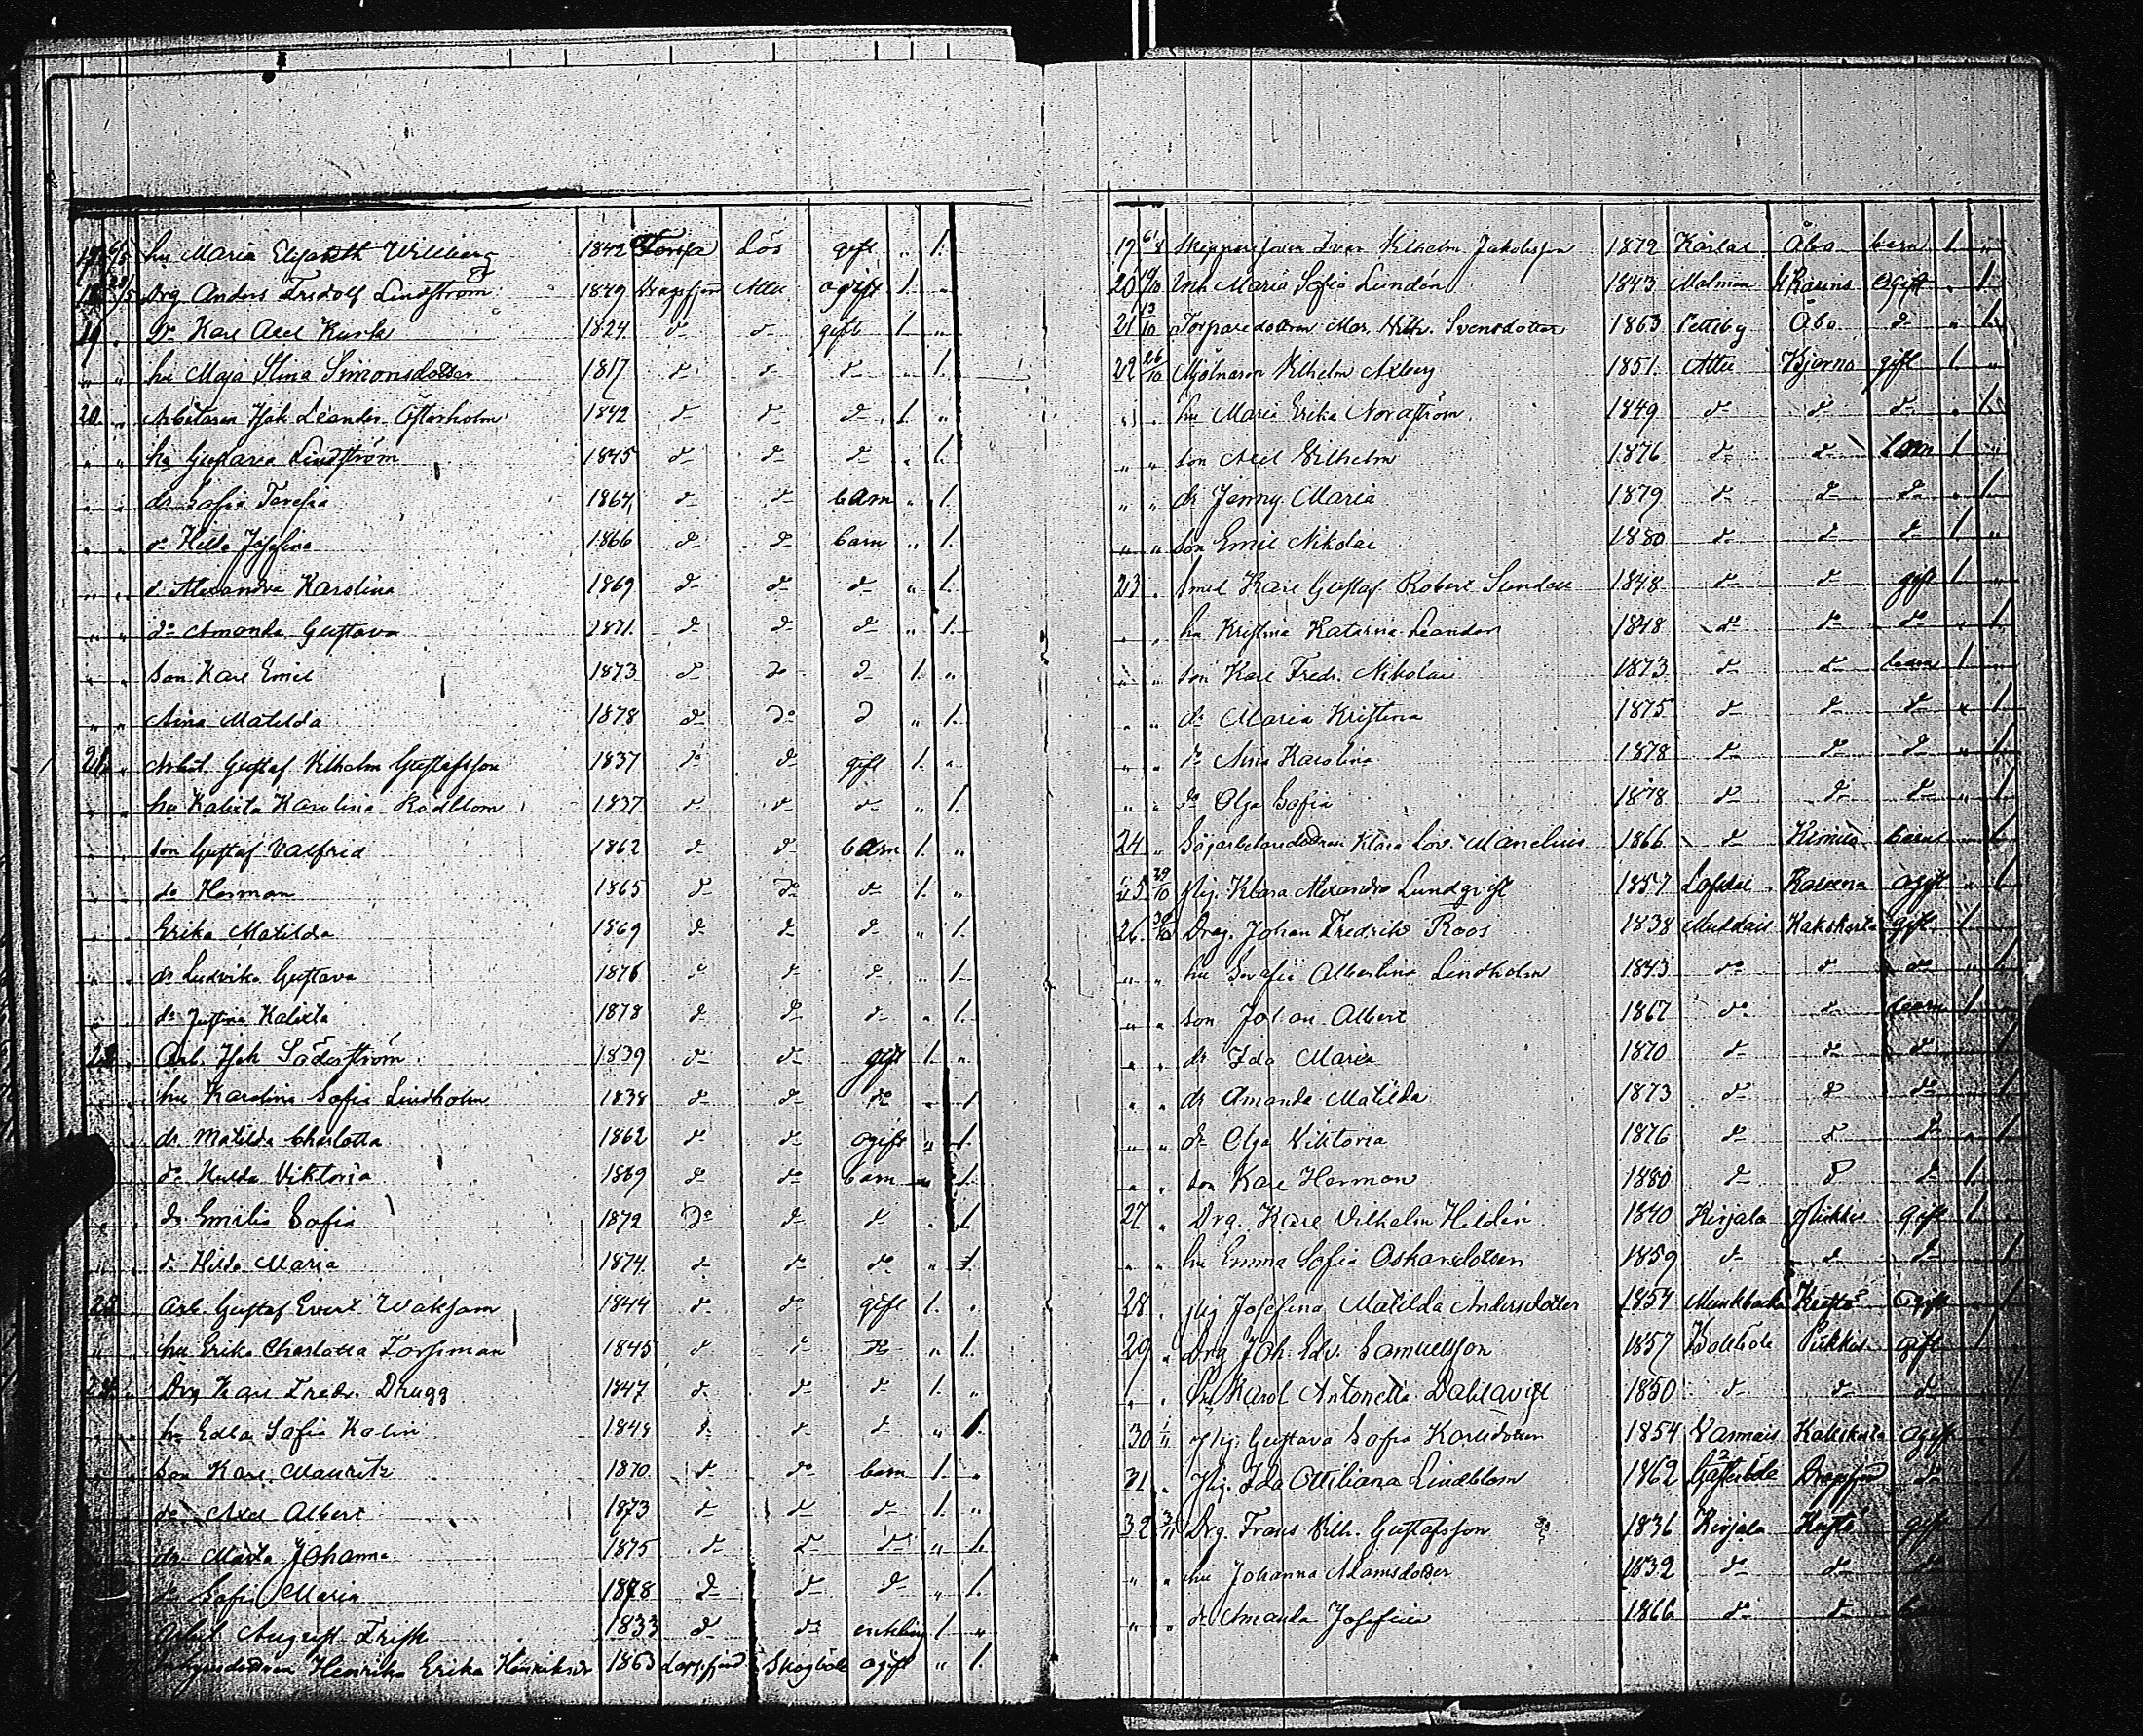 17 6/5 hu Maria Elisabeth Willberg 1842 Torsta Lös gift " 1.
18 28/5 Drg Anders Fridolf Lindström 1849 Dragsfjerd Attu ogift 1. "
19 " Do Karl Axel Kurk 1824 do do gift 1 "
" " hu Maja Stina Simonsdotter 1817 do do do " 1.
20 " Arbetaren Joh. Leander Österholm 1842 do do do 1. "
" " hu Gustava Lindström 1845 do do do " 1.
" " dr Sofia Teresia 1864 do do barn " 1.
" " do Hilda Josefina 1866 do do barn " 1.
" " do Alexandra Karolina 1869 do do do " 1.
" " do Amanda Gustava 1871 do do do " 1.
" " son Karl Emil 1873 do do do 1. "
" " Aina Matilda 1878 do do do " 1.
21 " Arbet. Gustaf Vilhelm Gustafsson 1837 do do gift 1. "
" " hu Kalixta Karolina Rödblom 1837 do do do " 1.
" " son Gustaf Valfrid 1862 do do barn 1. "
" " do Herman 1865 do do do 1. "
" " Erika Matilda 1869 do do do " 1.
" " dr Ludvika Gustava 1876 do do do " 1.
" " do Justina Kalixta 1878 do do do " 1.
22 " Arb. Joh Söderström 1839 do do gift 1. "
" " hu Karolina Sofia Lindholm 1838 do do do " 1
" " dr Matilda Charlotta 1862 do do ogift " 1.
" " do Hulda Viktoria 1869 do do barn " 1.
" " dr Emilia Sofia 1872 do do do " 1
" " do Hilda Maria 1874 do do do " 1.
23 " Arb. Gustaf Evert Waksam 1844 do do gift 1. "
" " hu Erika Charlotta Forssman 1845 do do do " 1.
24 " Drg Karl Fredr. Drugg 1847 do do do 1. "
" " hu Edla Sofia Kolin 1849 do do do " 1.
" " son Karl Mauritz 1870 do do barn 1. "
" " do Axel Albert 1873 do do do 1. "
" " dr Marta Johanna 1875 do do do " 1.
" " do Sofia Maria 1878 do do do " 1.
Arbet August Frisk 1833 do do enkling 1 "
Henrika Erika Henriksdr 1863 Skogböle ogift " 1.
19 6/8 Skepparesonen Ivar Vilhelm Jakobsson 1872 Kårlax Åbo barn 1 "
20 19/10 Maria Sofia Lundén 1843 Malmen ogift " 1.
21 13/10 Torparedottren Mar. Vilh. Svensdotter 1863 Pettiby Åbo do " 1.
22 26/10 Mjölnaren Vilhelm Axberg 1851 Attu Bjerno gift 1. "
" " hu Maria Erika Nordström 1849 do do do " 1.
" " son Axel Vilhelm 1876 do do barn 1 "
" " dr Jenny Maria 1879 do do do " 1.
" " son Emil Nikolai 1880 do do do 1 "
23 " Smed Karl Gustaf Robert Sundell 1848 do do gift 1 "
" " hu Kristina Katarina Leander 1848 do do do " 1.
" " son Karl Fredr. Nikolai 1873 do do barn 1 "
" " dr Maria Kristina 1875 do do do " 1.
" " do Aina Karolina 1878 do do do " 1.
" " do Olga Sofia 1878 do do do " 1
24 " Sågarbetaredottren Klara Lov. Manelius 1866 do Kimito barn " 1
25 29/10 Pig. Klara Alexandra Lundqvist 1857 Lofsdal ogift " 1
26 30/10 Drag. Johan Fredrik Roos 1838 Muddais Kakskerta gift 1 "
" " hu Serafia Albertina Lindholm 1843 do do do " 1
" " son Johan Albert 1867 do do barn 1 "
" " dr Ida Maria 1870 do do do " 1
" " dr Amanda Matilda 1873 do do do " 1
" " do Olga Viktoria 1876 do do do " 1.
" " son Karl Herman 1880 do do do 1 "
27 " Drg. Karl Vilhelm Hildén 1840 Kirjala Pikkis gift 1 "
" " hu Emma Sofia Oskarsdotter 1859 do do do " 1
28 " pig Josefina Matilda Andersdotter 1854 Munkbacka Kustö Ogift " 1
29 " Drg Joh. Edv. Samuelsson 1857 Bollböle Pikkis gift 1 "
" " hu Karol. Antonetta Dahlqvist 1850 do do do " 1
30 1/11 Pig. Gustava Sofia Karlsdotter 1854 Vannais Kakskerta ogift " 1
31 " Pig. Ida Ottiliana Lindblom 1862 Dragsfjerd do " 1
32 3/11 Drg. Frans Vilh. Gustafsson 1836 Kirjala Kustö gift 1
" " hu Johanna Adamsdotter 1832 do do do
" " dr Amanda Josefina 1866 do do